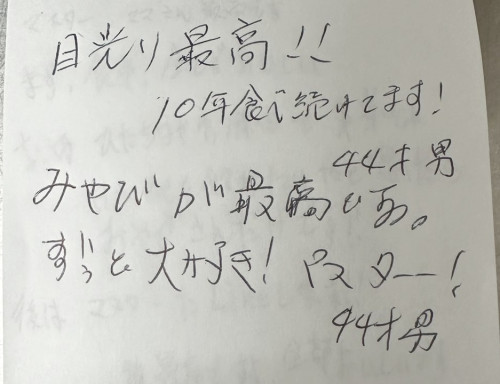 目光り最高!!
10年食べ続けてます!
44才 男
みやびが最高です。
ずーっと大好き! マスター!
44才男